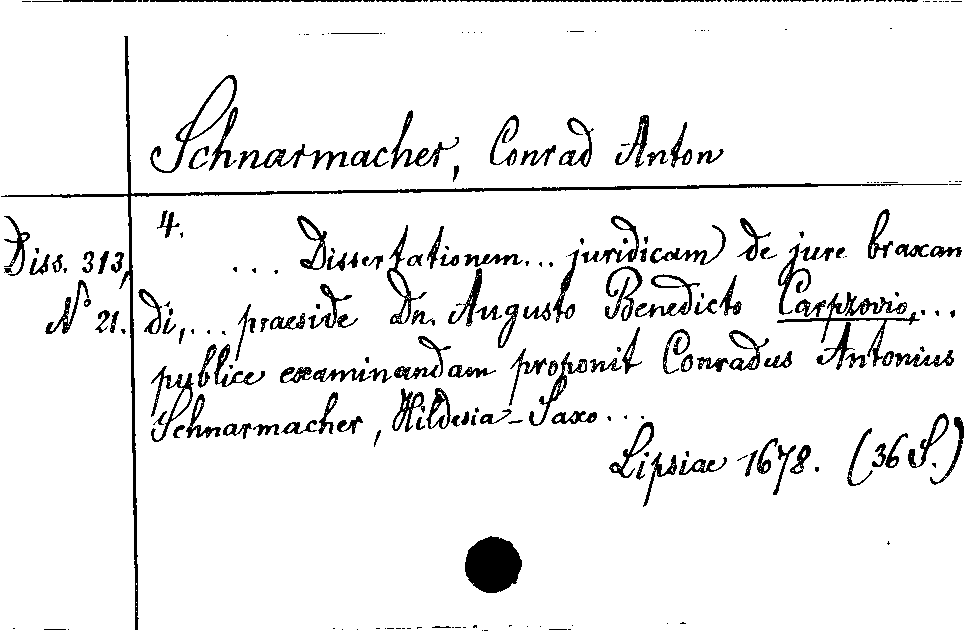 Schnarmacher, Conrad Anton
4.
Diss. 313, ... Dissertationem... juridicam de jure braxan
N° 21. di,... praeside Dn. Augusto Benedicto Carpzovio,...
publice examinandam proponit Conradus Antonius
Schnarmacher, Hildesia-Saxo...
Lipsiae 1678. (36 S.)